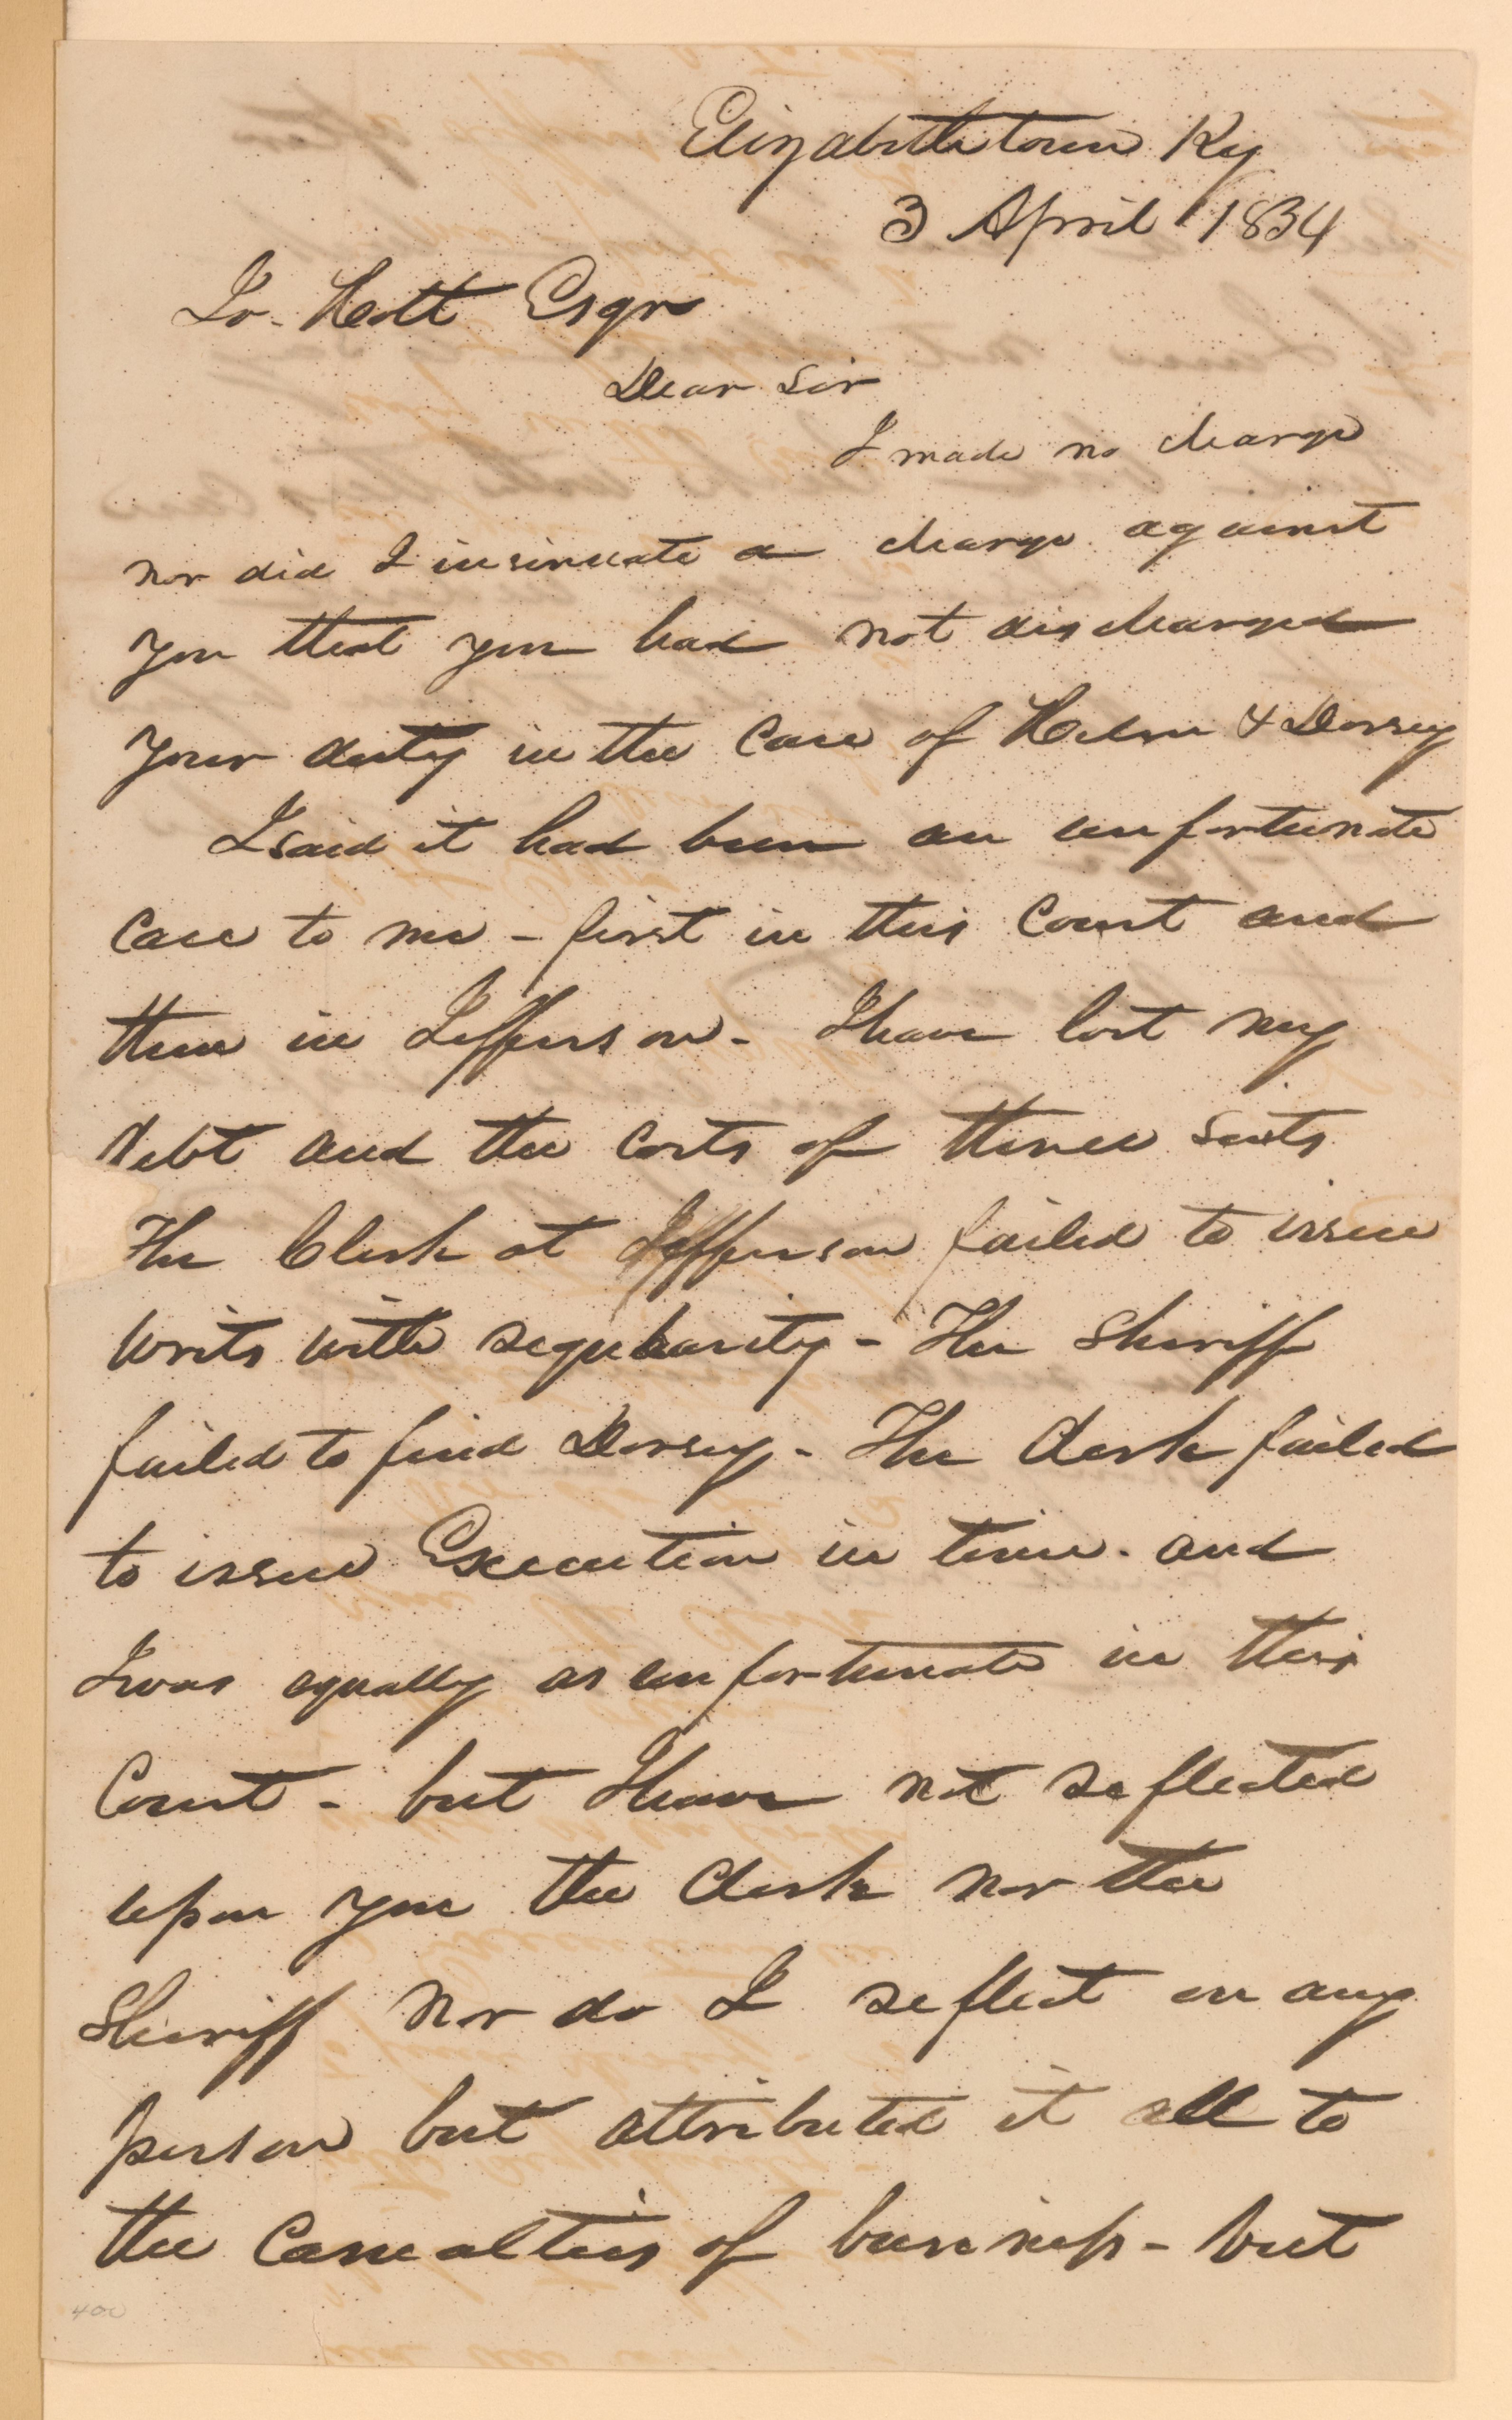 Elizabethtown Ky
3 April 1834
Jo. Holt Esqr
Dear Sir
I made no charge
nor did I insinuate a charge against
you that you had not discharged
your duty in the Case of Helm & Dorsey
I said it had been an unfortunate
Case to me - first in this Court and
then in Jefferson - I have lost my
debt and the Costs of three suits
The Clerk at Jefferson failed to issue
writs with regularity - The Sheriff
failed to find Dorsey - The Clerk failed
to issue Execution in time. and
I was equally as unfortunate in this
Court - but I have not reflected
upon you the Clerk nor the
Sheriff nor do I reflect on any
person but attributed it all to
the Casualties of business - but
400